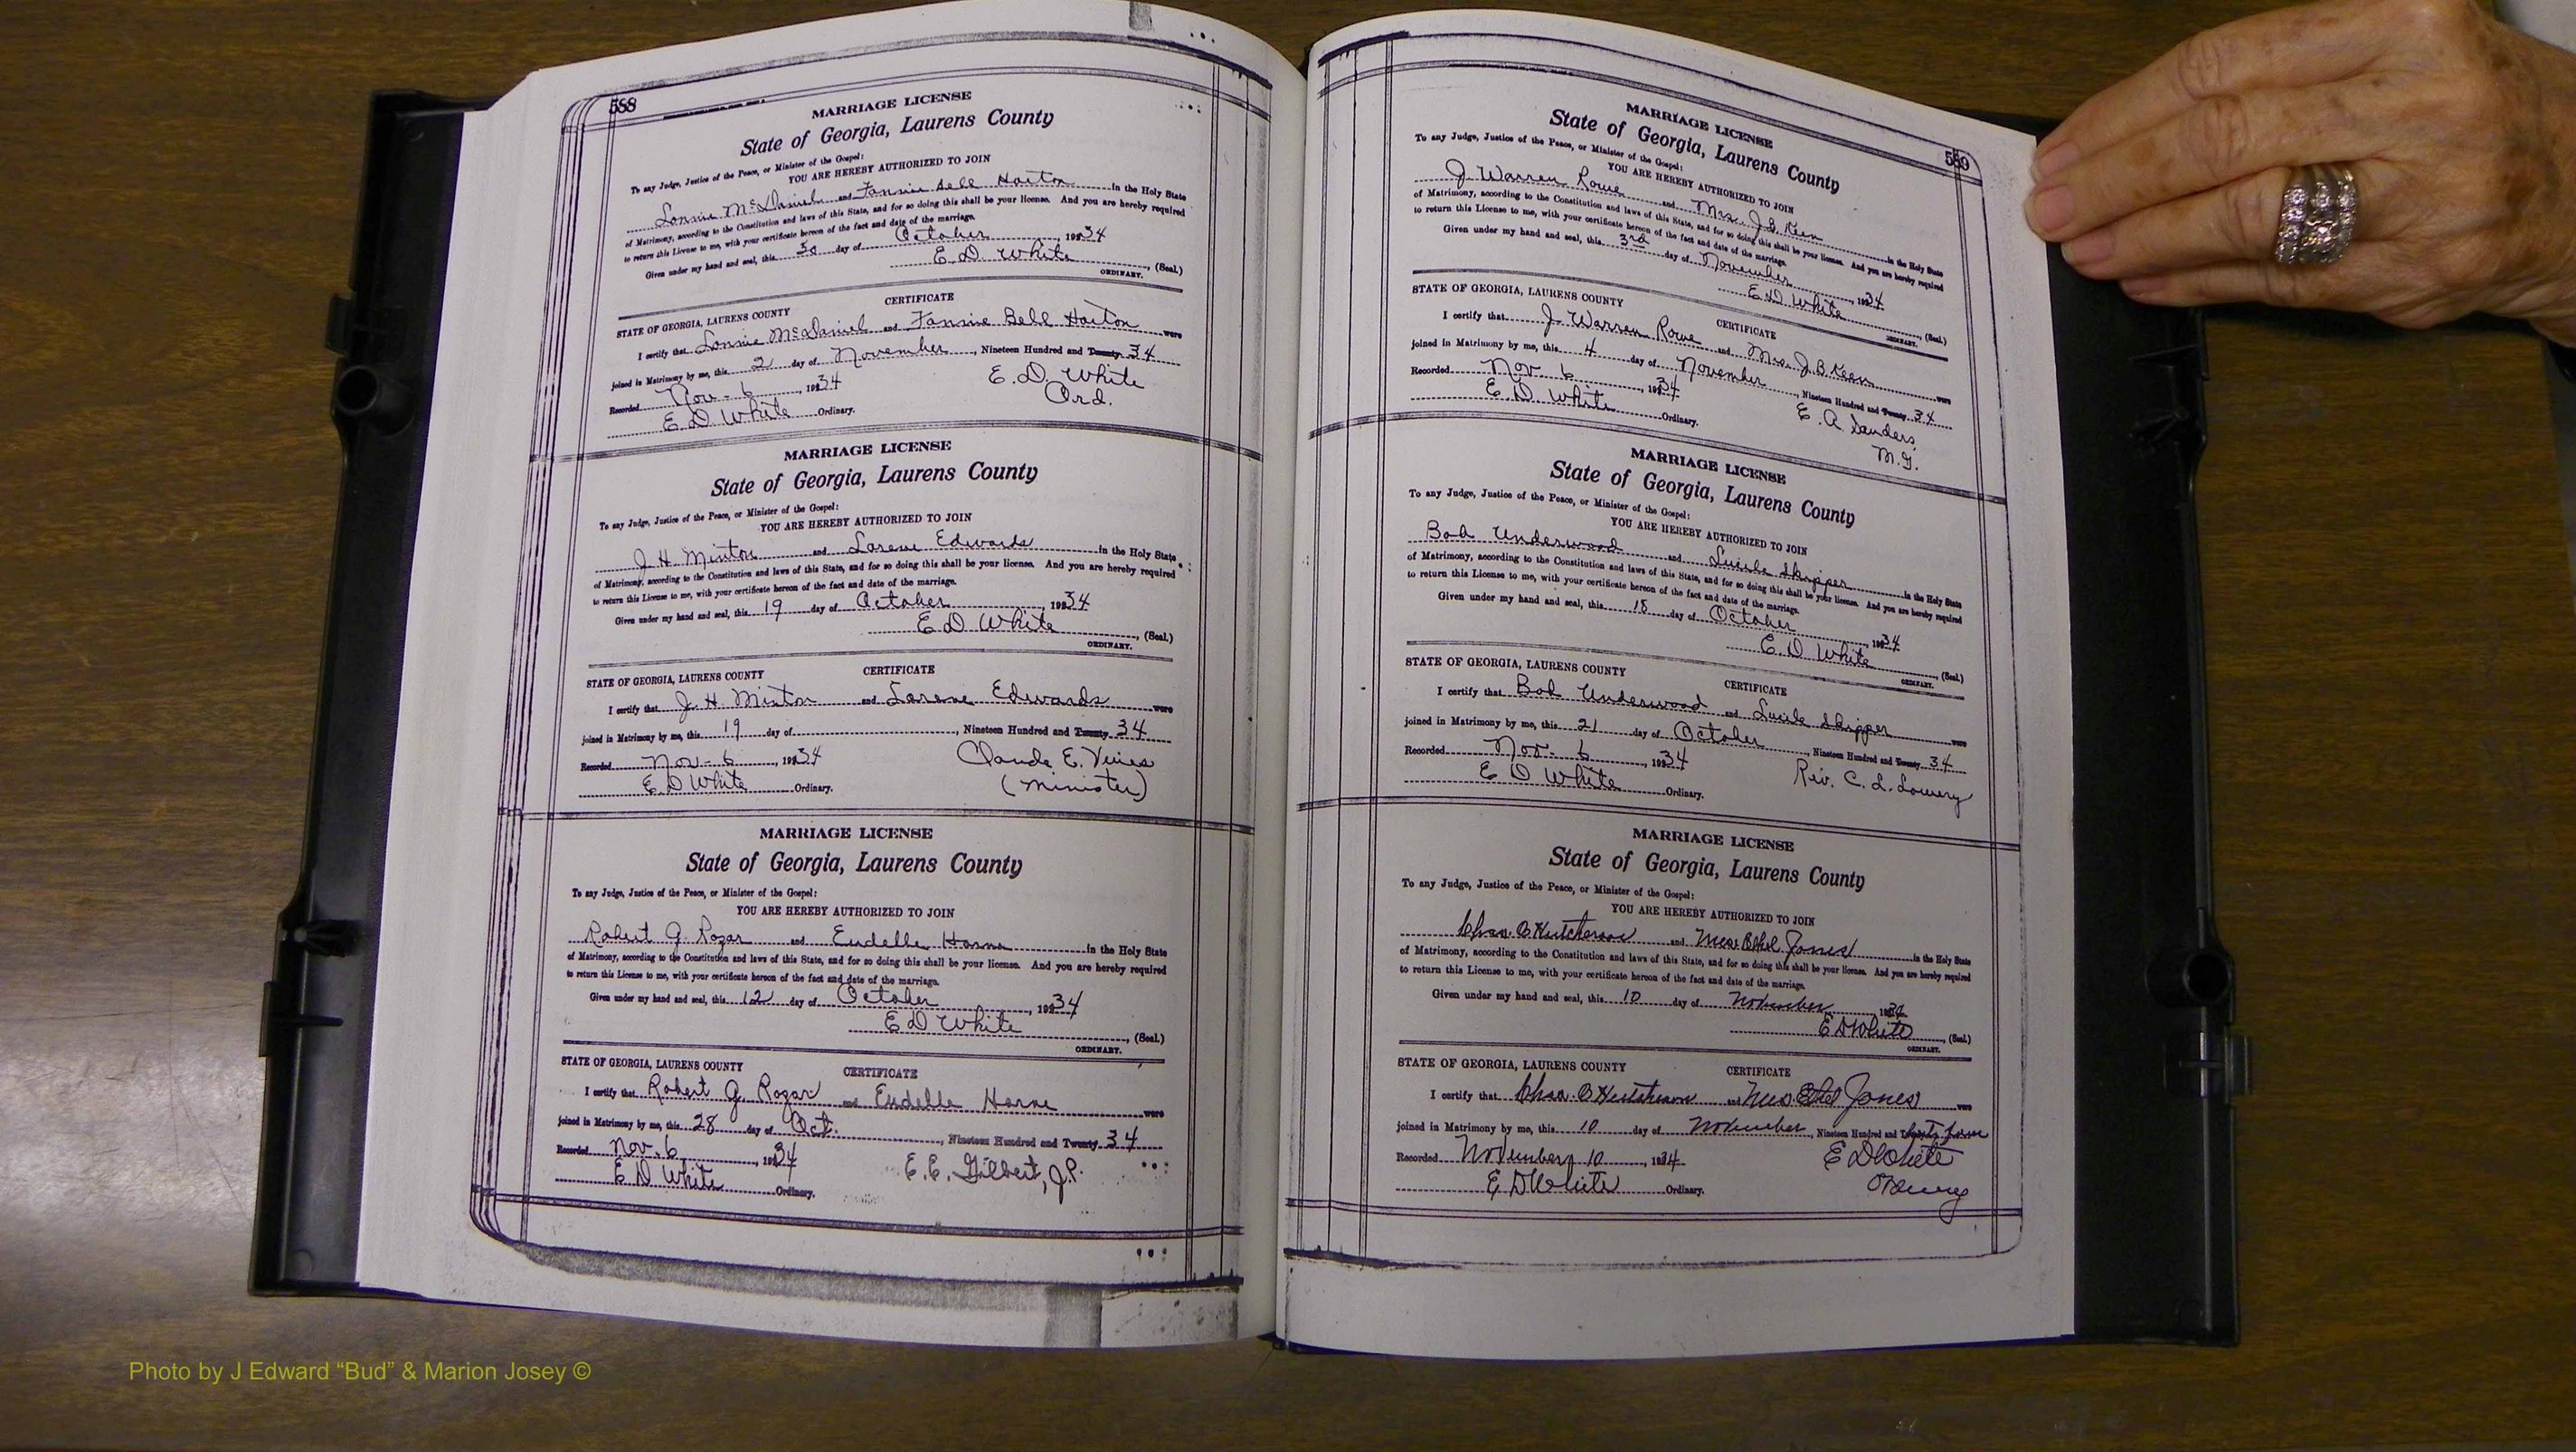 588
MARRIAGE LICENSE
State of Georgia, Laurens County
To any Judge, Justice of the Peace, or Minister of the Gospel:
YOU ARE HEREBY AUTHORIZED TO JOIN
Lonnie McDaniel and Fannie Bell Horton in the Holy State
of Matrimony, according to the Constitution and laws of this State, and for so doing this shall be your license. And you are hereby required
to return this License to me, with your certificate hereon of the fact and date of the marriage.
Given under my hand and seal, this 30 day of October, 1934
E. D. White, (Seal.)
ORDINARY.
CERTIFICATE
STATE OF GEORGIA, LAURENS COUNTY
I certify that Lonnie McDaniel and Fannie Bell Horton were
joined in Matrimony by me, this 2 day of November, Nineteen Hundred and Twenty 34
Recorded Nov - 6, 1934 E. D. White
E. D. White Ordinary. Ord.
MARRIAGE LICENSE
State of Georgia, Laurens County
To any Judge, Justice of the Peace, or Minister of the Gospel:
YOU ARE HEREBY AUTHORIZED TO JOIN
J. H. Minton and Lorene Edwards in the Holy State
of Matrimony, according to the Constitution and laws of this State, and for so doing this shall be your license. And you are hereby required
to return this License to me, with your certificate hereon of the fact and date of the marriage.
Given under my hand and seal, this 19 day of October, 1934
E D White, (Seal.)
ORDINARY.
STATE OF GEORGIA, LAURENS COUNTY CERTIFICATE
I certify that J. H. Minton and Lorene Edwards were
joined in Matrimony by me, this 19 day of, Nineteen Hundred and Twenty 34
Recorded Nov - 6, 1934 Claude E. Vines
E. D White Ordinary. (Minister)
MARRIAGE LICENSE
State of Georgia, Laurens County
To any Judge, Justice of the Peace, or Minister of the Gospel:
YOU ARE HEREBY AUTHORIZED TO JOIN
Robert G. Rozar and Eudelle Horne in the Holy State
of Matrimony, according to the Constitution and laws of this State, and for so doing this shall be your license. And you are hereby required
to return this License to me, with your certificate hereon of the fact and date of the marriage.
Given under my hand and seal, this 12 day of October, 1934
E D White, (Seal.)
ORDINARY.
STATE OF GEORGIA, LAURENS COUNTY CERTIFICATE
I certify that Robert G. Rozar and Eudelle Horne were
joined in Matrimony by me, this 28 day of Oct., Nineteen Hundred and Twenty 34
Recorded Nov. 6, 1934 E. E. Gilbert, J.P.
E D White Ordinary.
589
MARRIAGE LICENSE
State of Georgia, Laurens County
To any Judge, Justice of the Peace, or Minister of the Gospel:
YOU ARE HEREBY AUTHORIZED TO JOIN
J Warren Rowe and Mrs. J. B. Keen in the Holy State
of Matrimony, according to the Constitution and laws of this State, and for so doing this shall be your license. And you are hereby required
to return this License to me, with your certificate hereon of the fact and date of the marriage.
Given under my hand and seal, this 3rd day of November, 1934
E D White, (Seal.)
ORDINARY.
STATE OF GEORGIA, LAURENS COUNTY CERTIFICATE
I certify that J. Warren Rowe and Mrs. J. B Keen were
joined in Matrimony by me, this 4 day of November, Nineteen Hundred and Twenty 34
Recorded Nov 6, 1934 E. A. Sanders
E. D. White Ordinary. M. G.
MARRIAGE LICENSE
State of Georgia, Laurens County
To any Judge, Justice of the Peace, or Minister of the Gospel:
YOU ARE HEREBY AUTHORIZED TO JOIN
Bob Underwood and Lucile Skipper in the Holy State
of Matrimony, according to the Constitution and laws of this State, and for so doing this shall be your license. And you are hereby required
to return this License to me, with your certificate hereon of the fact and date of the marriage.
Given under my hand and seal, this 18 day of October, 1934
E. D White, (Seal.)
ORDINARY.
STATE OF GEORGIA, LAURENS COUNTY CERTIFICATE
I certify that Bob Underwood and Lucile Skipper were
joined in Matrimony by me, this 21 day of October, Nineteen Hundred and Twenty 34
Recorded Nov - 6, 1934 Rev. C. L. Lowery
E D White Ordinary.
MARRIAGE LICENSE
State of Georgia, Laurens County
To any Judge, Justice of the Peace, or Minister of the Gospel:
YOU ARE HEREBY AUTHORIZED TO JOIN
Chas. O Hutcheson and Mrs. Ethel Jones in the Holy State
of Matrimony, according to the Constitution and laws of this State, and for so doing this shall be your license. And you are hereby required
to return this License to me, with your certificate hereon of the fact and date of the marriage.
Given under my hand and seal, this 10 day of November 1934
E D White, (Seal.)
ORDINARY.
STATE OF GEORGIA, LAURENS COUNTY CERTIFICATE
I certify that Chas. O Hutcheson and Mrs Ethel Jones were
joined in Matrimony by me, this 10 day of November, Nineteen Hundred and
Recorded November 10, 1934 E D White
E D White Ordinary.
Photo by J Edward “Bud” & Marion Josey ©